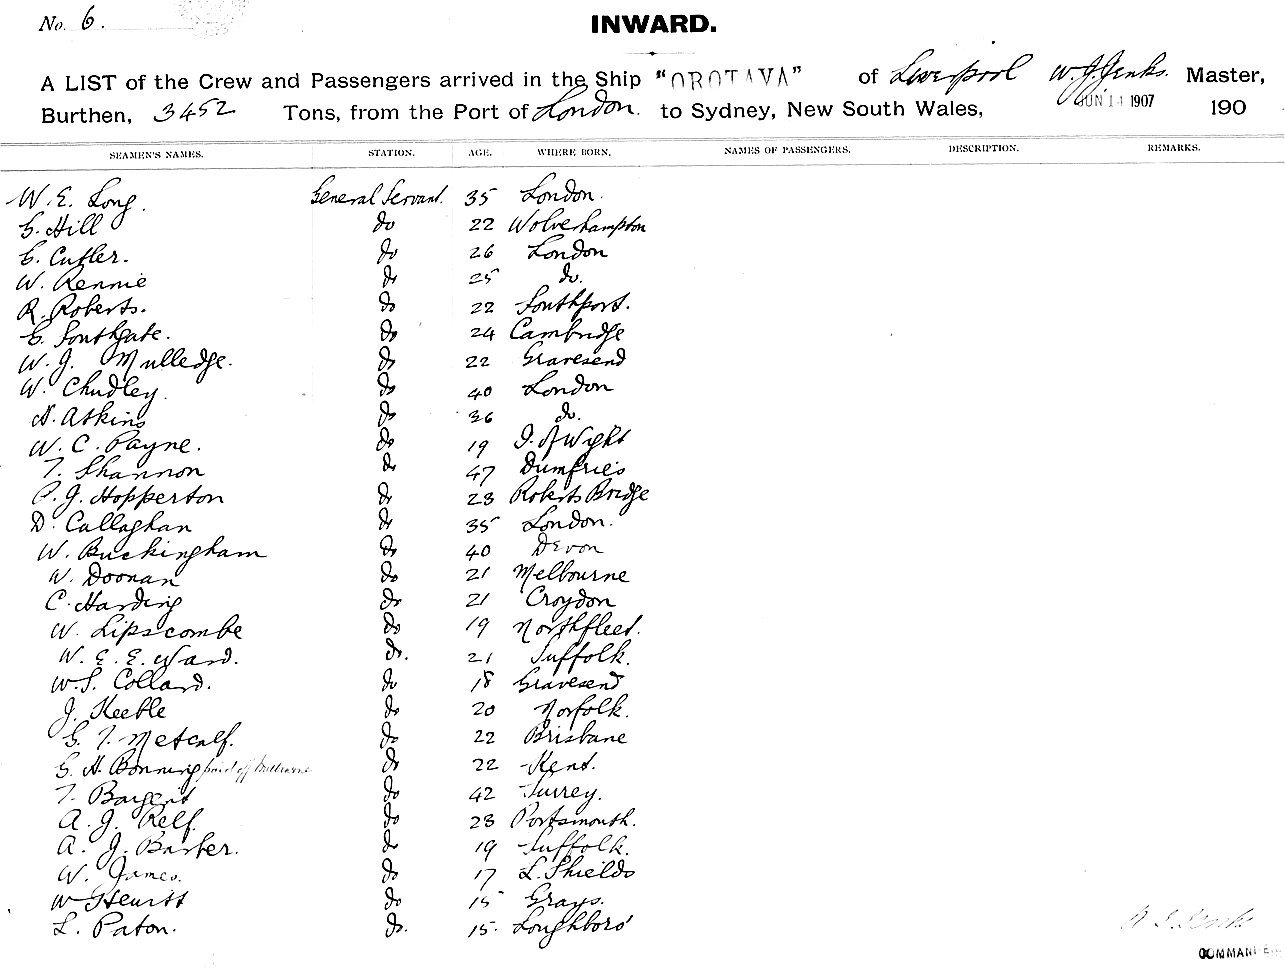 No. 6.
INWARD.
A LIST of the Crew and Passengers arrived in the Ship "OROTAVA" of Liverpool W. J. Jenks. Master,
Burthen, 3452 Tons, from the Port of London. to Sydney, New South Wales, JUN 14 1907 190
SEAMEN'S NAMES. STATION. AGE. WHERE BORN. NAMES OF PASSENGERS. DESCRIPTION. REMARKS.
W. E. Long. General Servant. 35 London.
G. Hill do 22 Wolverhampton
C. Cutler. do 26 London
W. Rennie do 25 do.
R. Roberts. do 22 Southport.
C. Southgate. do 24 Cambridge
W. J. Mulledge. do 22 Gravesend
W. Chudley. do 40 London
A. Atkins do 36 do.
W. C. Payne. do 19 I. of Wight
T. Shannon do 47 Dumfries
P. J. Hopperton do 23 Roberts Bridge
D. Callaghan do 35 London.
W. Buckingham do 40 Devon
W. Doonan do 21 Melbourne
C. Harding do 21 Croydon
W. Lipscombe do 19 Northfleet.
W. E. E. Ward. do. 21 Suffolk.
W. S. Collard. do 18 Gravesend
J. Keeble do 20 Norfolk.
G. T. Metcalf. do 22 Brisbane
G. H. Bonning paid off Melbourne do 22 Kent.
T. Bargent do 42 Surrey.
A. J. Relf. do 23 Portsmouth.
A. J. Barker. do 19 Suffolk.
W. James. do 17 L. Shields
W Hewitt do 15 Grays.
L. Paton. do. 15. Loughboro'